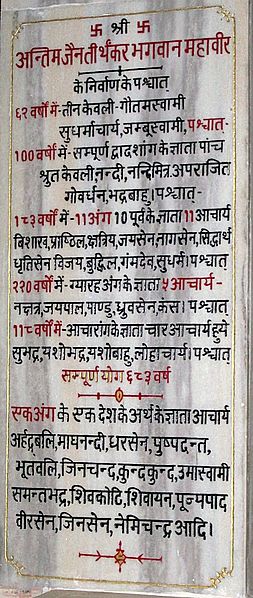 卐 श्री 卐
अन्तिम जैनतीर्थंकर भगवान महावीर
के निर्वाण के पश्चात्
६२ वर्षों में-तीन केवली-गौतमस्वामी
सुधर्माचार्य,जम्बूस्वामी, पश्चात्-
100 वर्षों में-सम्पूर्ण द्वादशांग के ज्ञाता पांच
श्रुत केवली,नन्दी,नन्दिमित्र,अपराजित
गोवर्धन,भद्रबाहु। पश्चात्-
1८३ वर्षों में-11अंग 10 पूर्व के ज्ञाता 11आचार्य
विशाख,प्राष्ठिल,क्षत्रिय,जयसेन,नागसेन,सिद्धार्थ
धृतिसेन विजय,बुद्दिल,गंमदेव,सुधर्म। पश्चात्
२२० वर्षों में-ग्यारह अंग के ज्ञाता ५ आचार्य-
नक्षत्र,जयपाल,पाण्डु,ध्रुवसेन,कंस। पश्चात्
11८ वर्षों में-आचारांग के ज्ञाता-चार आचार्य हुये
सुभद्र,यशोभद्र,यशोबाहु,लोहाचार्य। पश्चात्
सम्पूर्ण योग ६८३ वर्ष
एक अंग के एक देश के अर्थ के ज्ञाता आचार्य
अर्हद्बलि,माघनन्दी,धरसेन,पुष्पदन्त,
भूतबलि,जिनचन्द्र,कुन्दकुन्द,उमास्वामी
समन्तभद्र,शिवकोटि,शिवायन,पूज्यपाद
वीरसेन,जिनसेन,नेमिचन्द्र आदि।